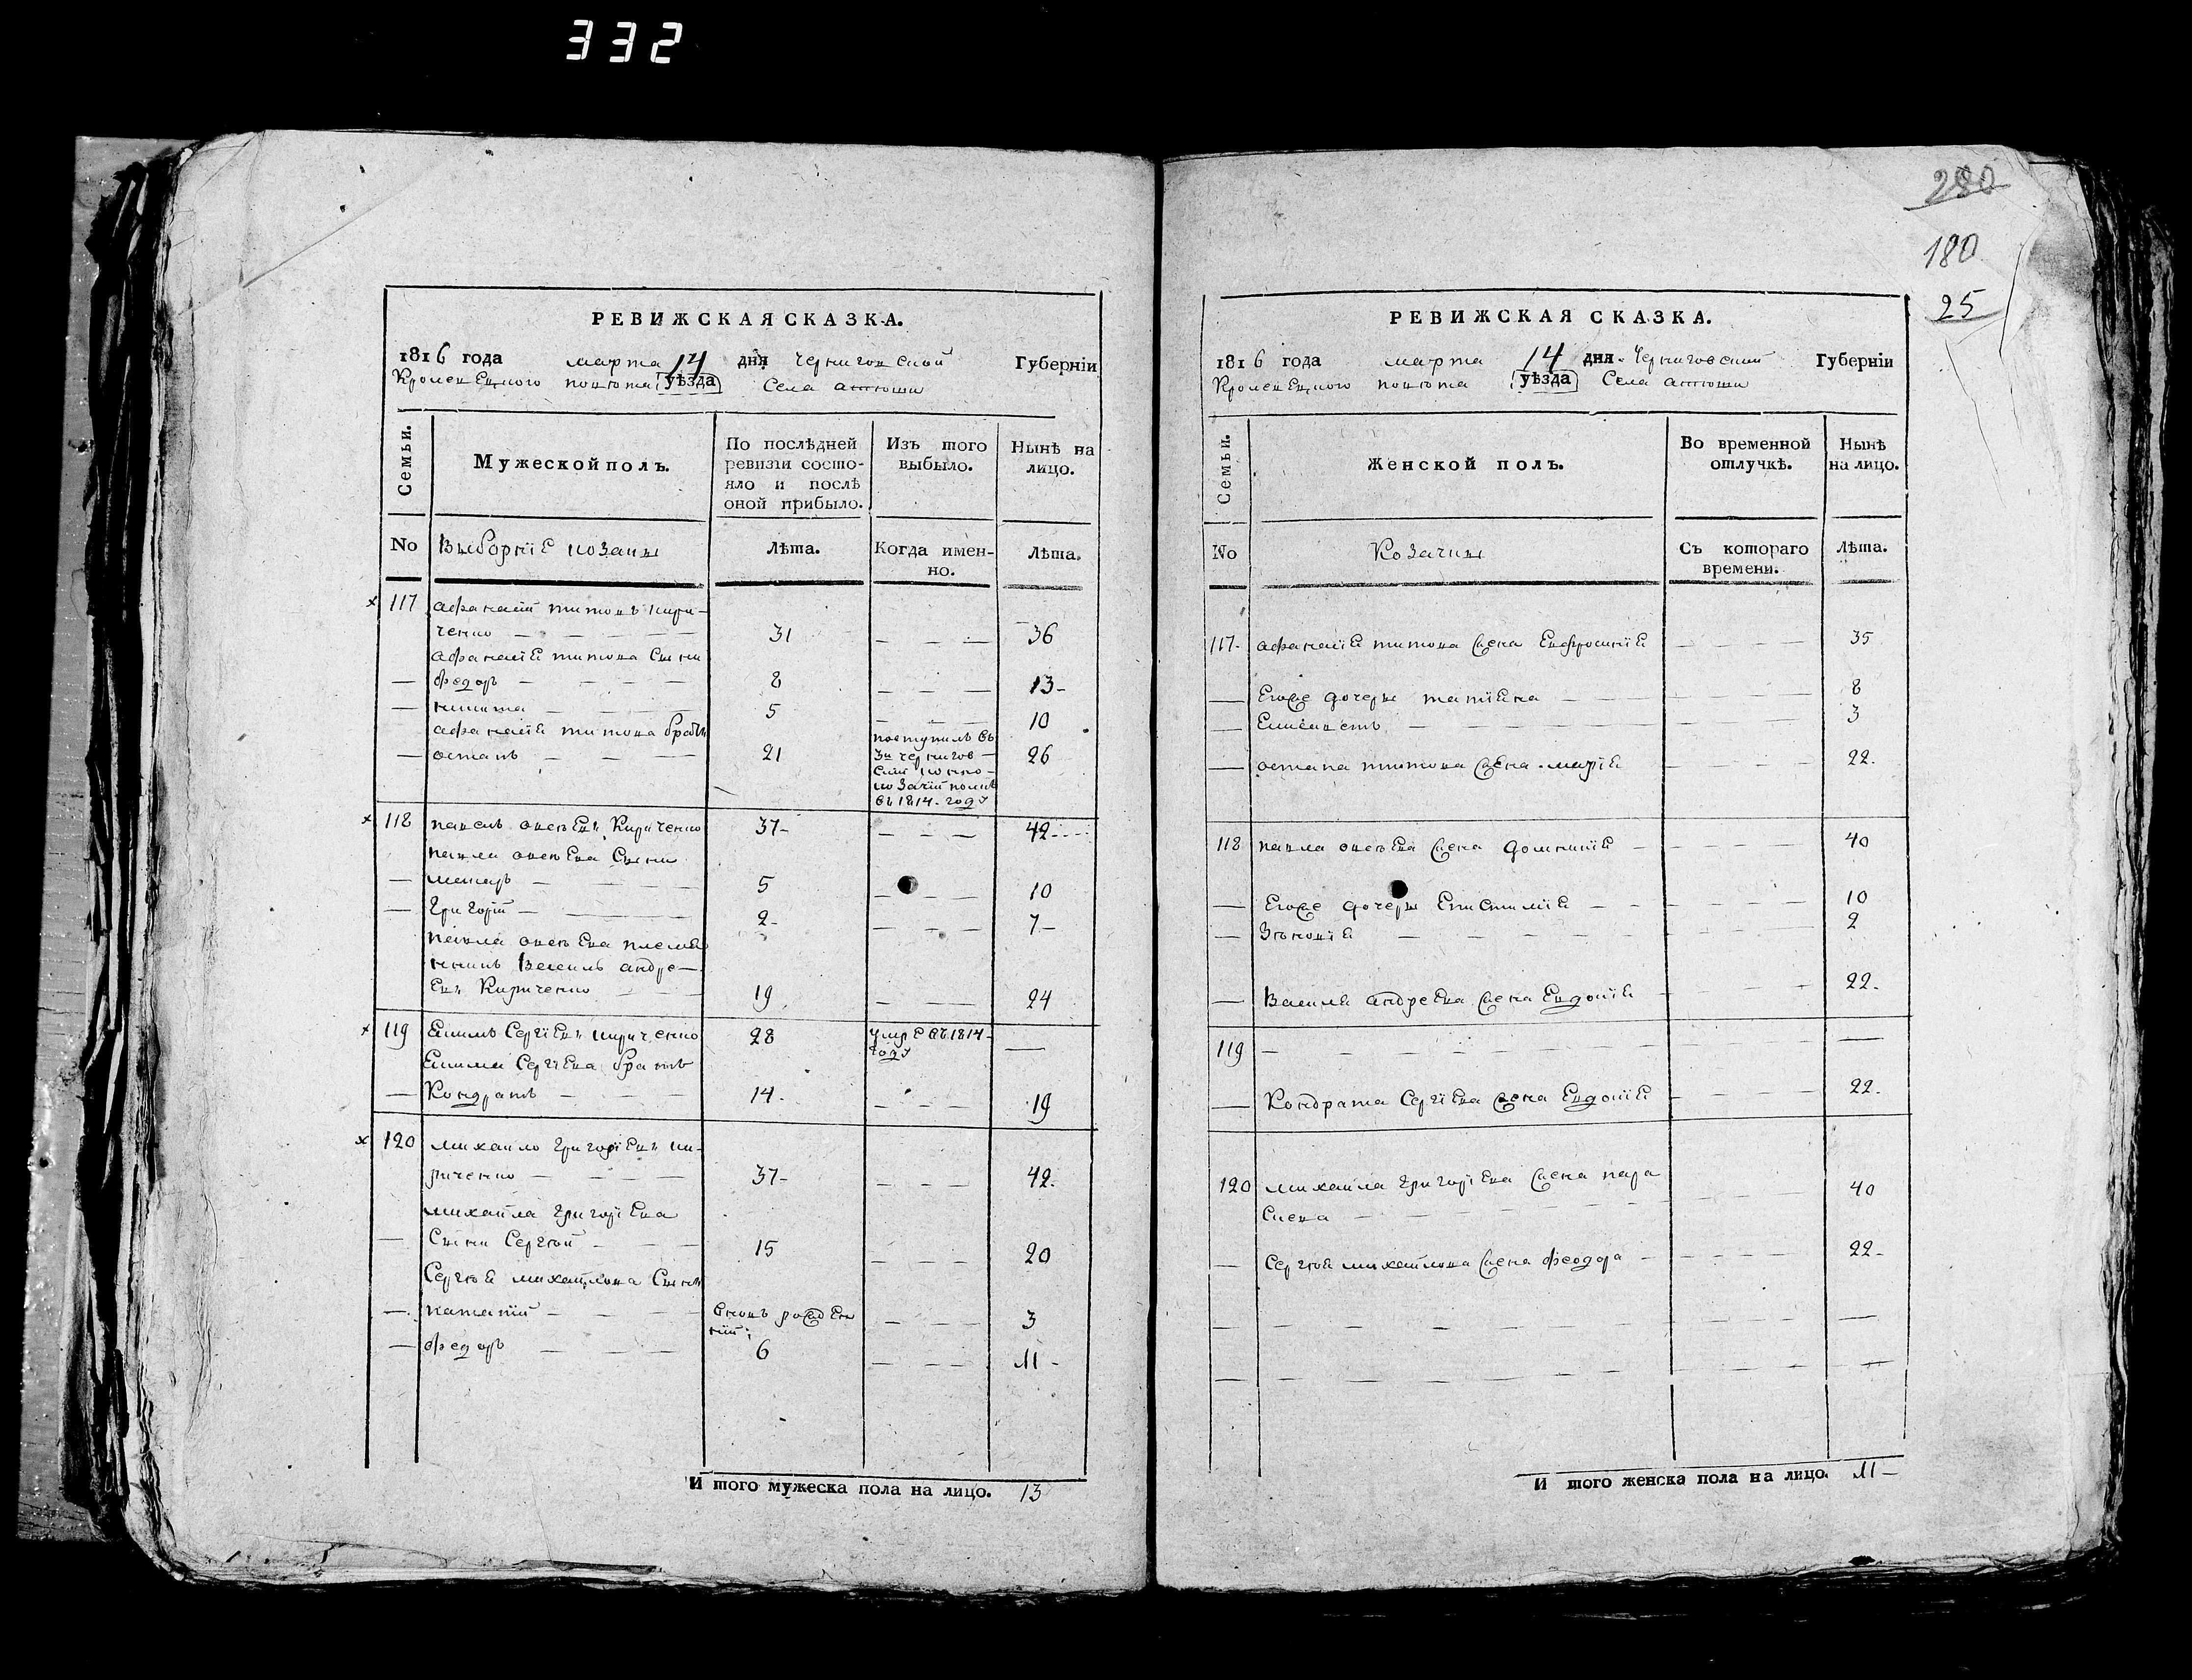 332
РЕВИЖСКАЯ СКАЗКА.
1816 года марта 14 дня Черниговской Губерніи
Кролевецкого повѣта уѣзда Села атюши
Семьи.
Мужеской полъ.
По послѣдней ревизіи состояло и послѣ оной прибыло.
Изъ того выбыло.
Нынѣ на лицо.
No
Выборніе козаки
Лѣта.
Когда именно.
Лѣта.
117 афанасій титовъ кири-
ченко — 31 — 36
афанасія титова сыни
— федоръ — 8 — 13
— никита — 5 — 10
афанасія титова братъ
— остапъ — 21 поступилъ въ 26
черниговскій конно-
козачій полкъ
въ 1814. году
118 павелъ Кириченко 37 — 42
павла сыни
— — 5 — 10
— григорій — 2 — 7
павла племя-
нникъ Василь андре-
евъ Кириченко — 19 — 24
119 Сергіевъ кириченко 28 умре въ 1814 —
году
Сергіева братъ
— Кондратъ — 14 — 19
120 михайло григоріевъ ки-
риченко — 37 — 42
михайла григоріева
— сыни Сергѣй — 15 — 20
Сергѣя михайлова сыни
— — вновъ рожден- 3
ній
— федоръ — 6 — 11
И того мужеска пола на лицо. 13
280
180
25
РЕВИЖСКАЯ СКАЗКА.
1816 года марта 14 дня Черниговской Губерніи
Кролевецкого повѣта уѣзда Села атюши
Семьи.
Женской полъ.
Во временной отлучкѣ.
Нынѣ на лицо.
No
Козачки
Съ котораго времени.
Лѣта.
117 афанасія титова жена Евфросинія — 35
— Егоже дочери татіяна — 8
— — 3
— остапа титова жена марія 22
118 павла жена домникія — 40
— Егоже дочери — 10
— Зѣновія — 2
— Василя андреева жена Евдокія — 22
119 — —
— Кондрата Сергіева жена Евдокія — 22
120 михайла григоріева жена пара- 40
скева —
— Сергѣя михайлова жена феодора — 22
И того женска пола на лицо. 11